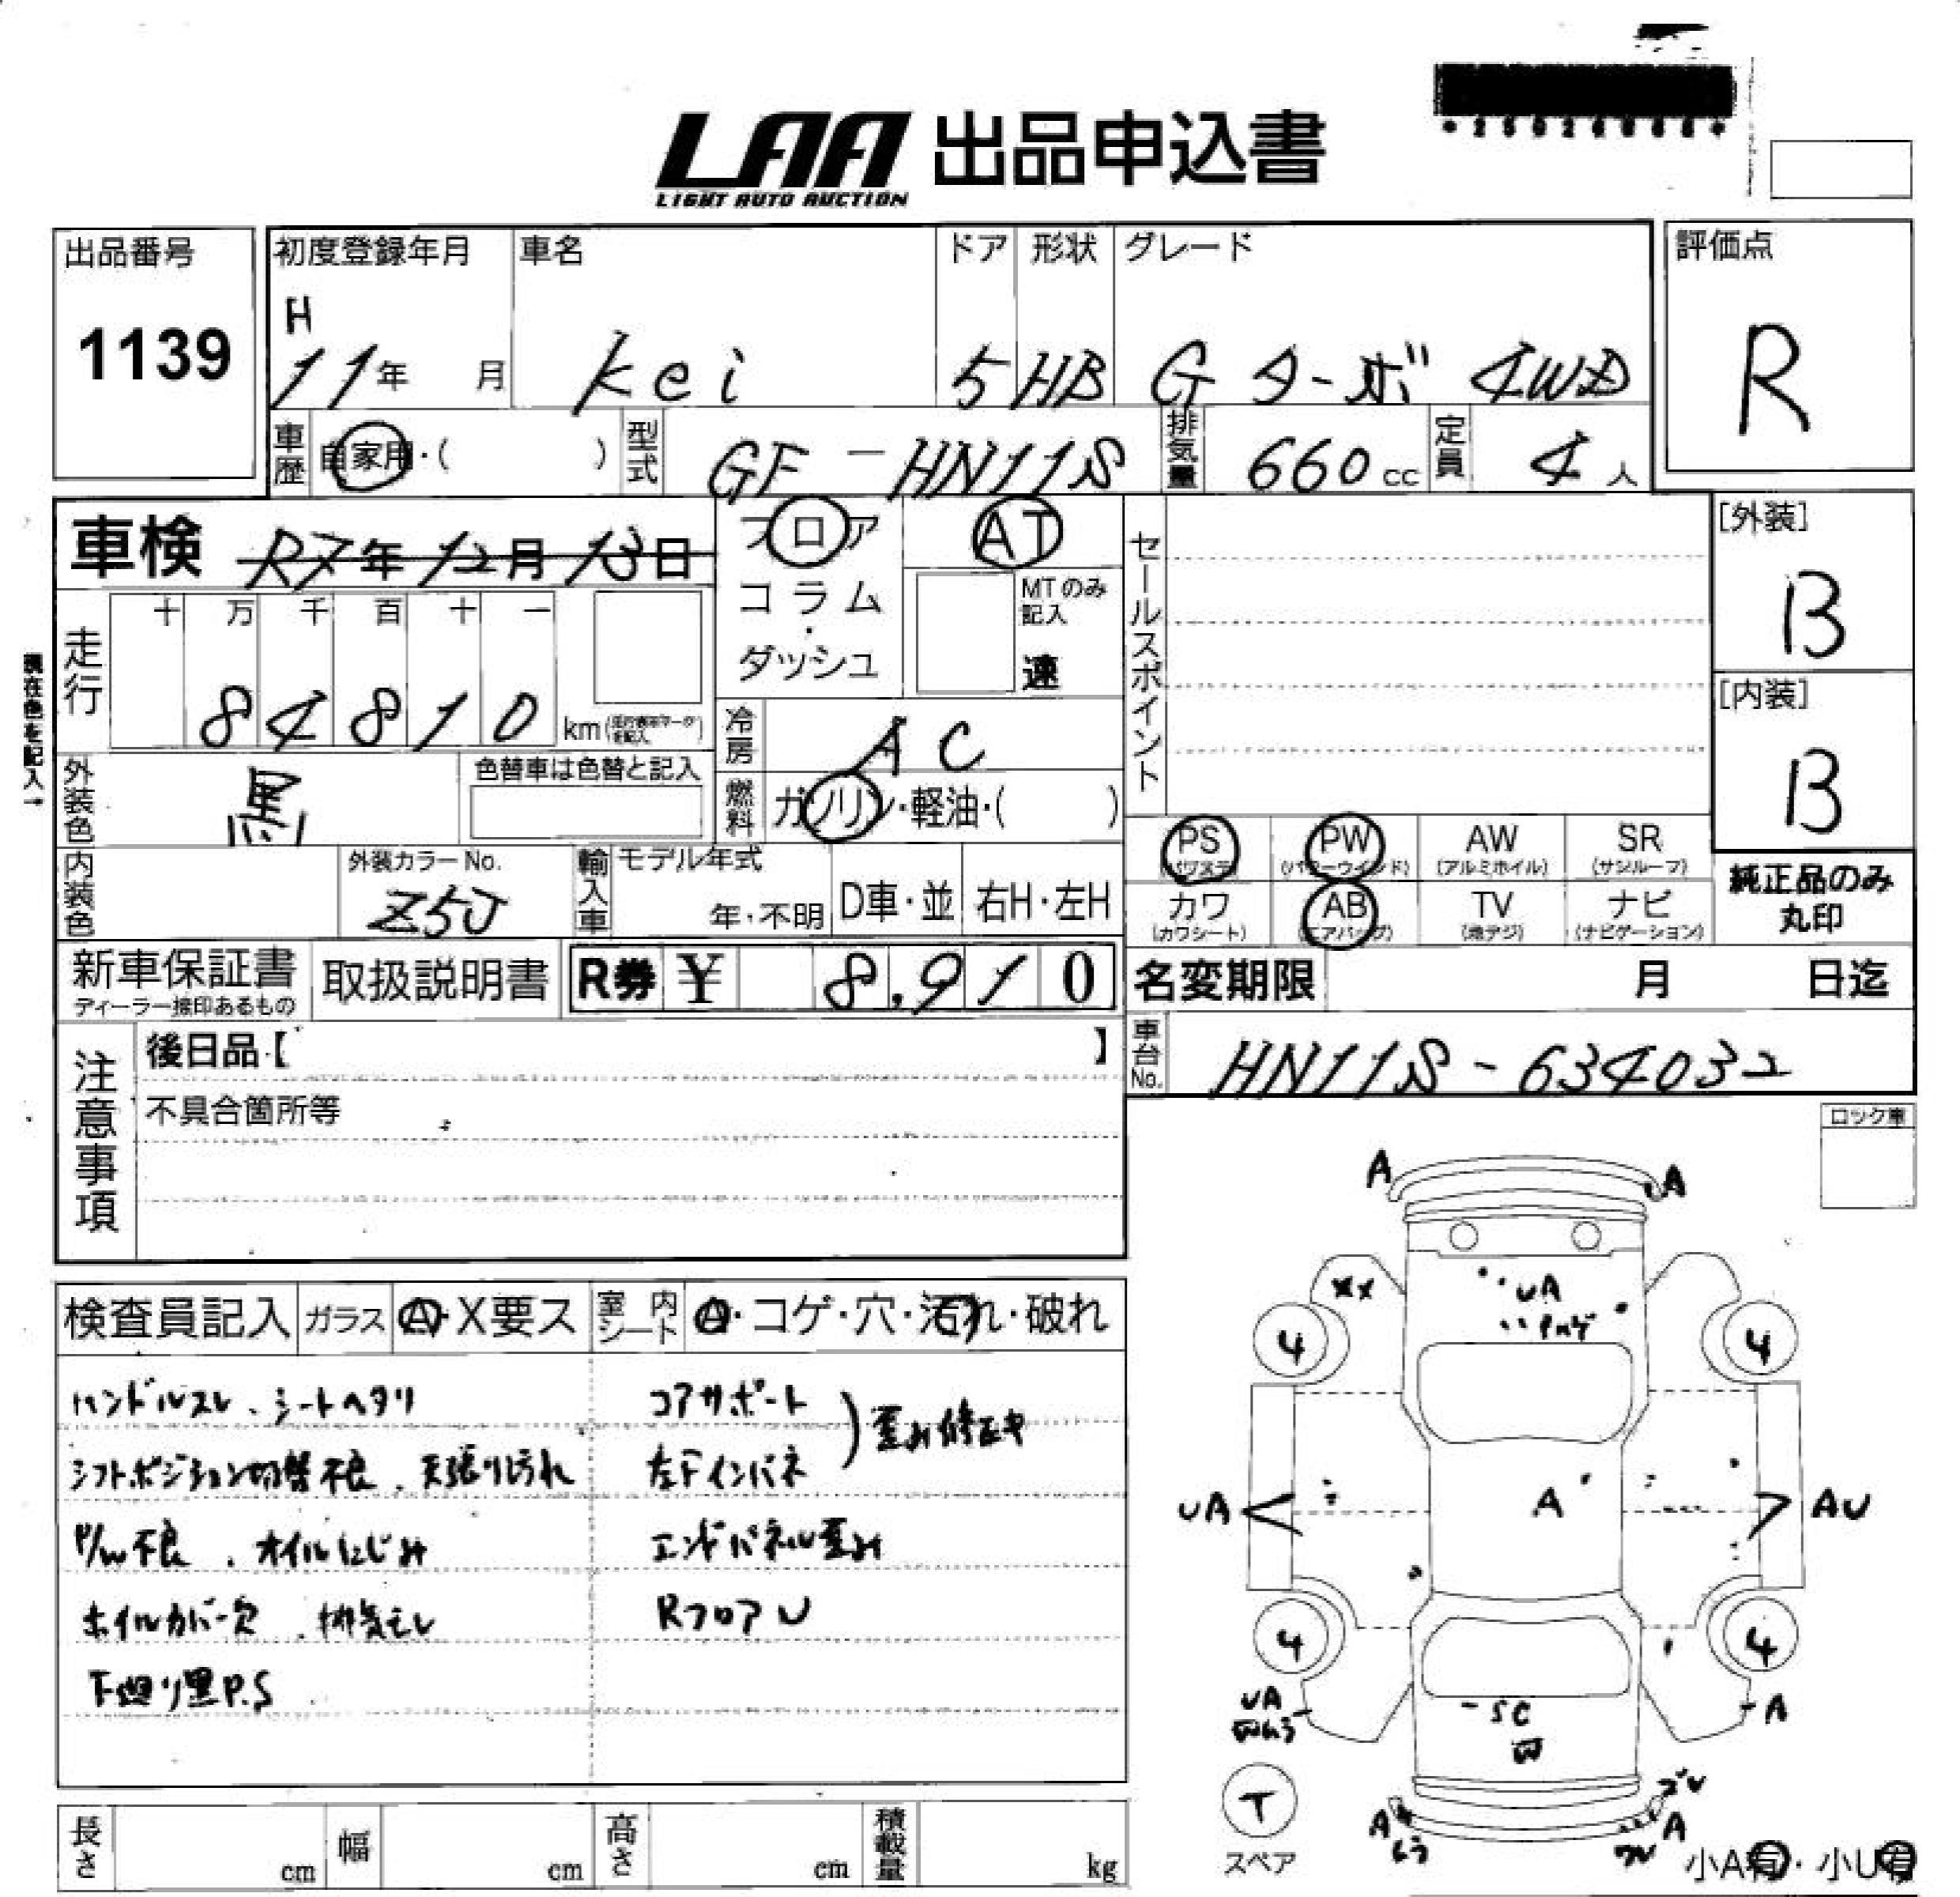 LAA 出品申込書
LIGHT AUTO AUCTION
出品番号
1139
初度登録年月
H
11年 月
車名
kei
ドア
5
形状
HB
グレード
Gターボ 4WD
評価点
R
車歴 自家用・( )
型式 GF-HN11S
排気量 660cc
定員 4人
車検 R7年12月13日
フロア
コラム
・
ダッシュ
AT
MTのみ
記入
速
セールスポイント
[外装]
B
[内装]
B
現在色を記入→
走行
十 万 千 百 十 一
8 4 8 1 0 km
冷房 AC
外装色 黒
色替車は色替と記入
燃料 ガソリン・軽油・( )
内装色
外装カラーNo.
Z5J
輸入車
モデル年式
年・不明
D車・並
右H・左H
PS
(パワステ)
PW
(パワーウインド)
AW
(アルミホイル)
SR
(サンルーフ)
カワ
(カワシート)
AB
(エアバッグ)
TV
(地デジ)
ナビ
(ナビゲーション)
純正品のみ
丸印
新車保証書
取扱説明書
R券 ¥ 8,910
名変期限 月 日迄
車台No. HN11S-634032
注意事項
後日品【 】
不具合箇所等
ロック車
検査員記入
ガラス A・X要ス
室内シート A・コゲ・穴・汚れ・破れ
ハンドルスレ、シートヘタリ
シフトポジション切替不良、天張り汚れ
P/W不良、オイルにじみ
ホイルカバー欠、排気モレ
下廻り黒P.S
コアサポート
左Fインパネ
)歪み修正キ
エンドパネル歪み
RフロアU
A
A
XX
UA
ハゲ
4
4
UA
A
AU
4
4
UA
Wムラ
SC
W
A
T
スペア
A
ムラ
A
小A有・小U有
長さ cm
幅 cm
高さ cm
積載量 kg